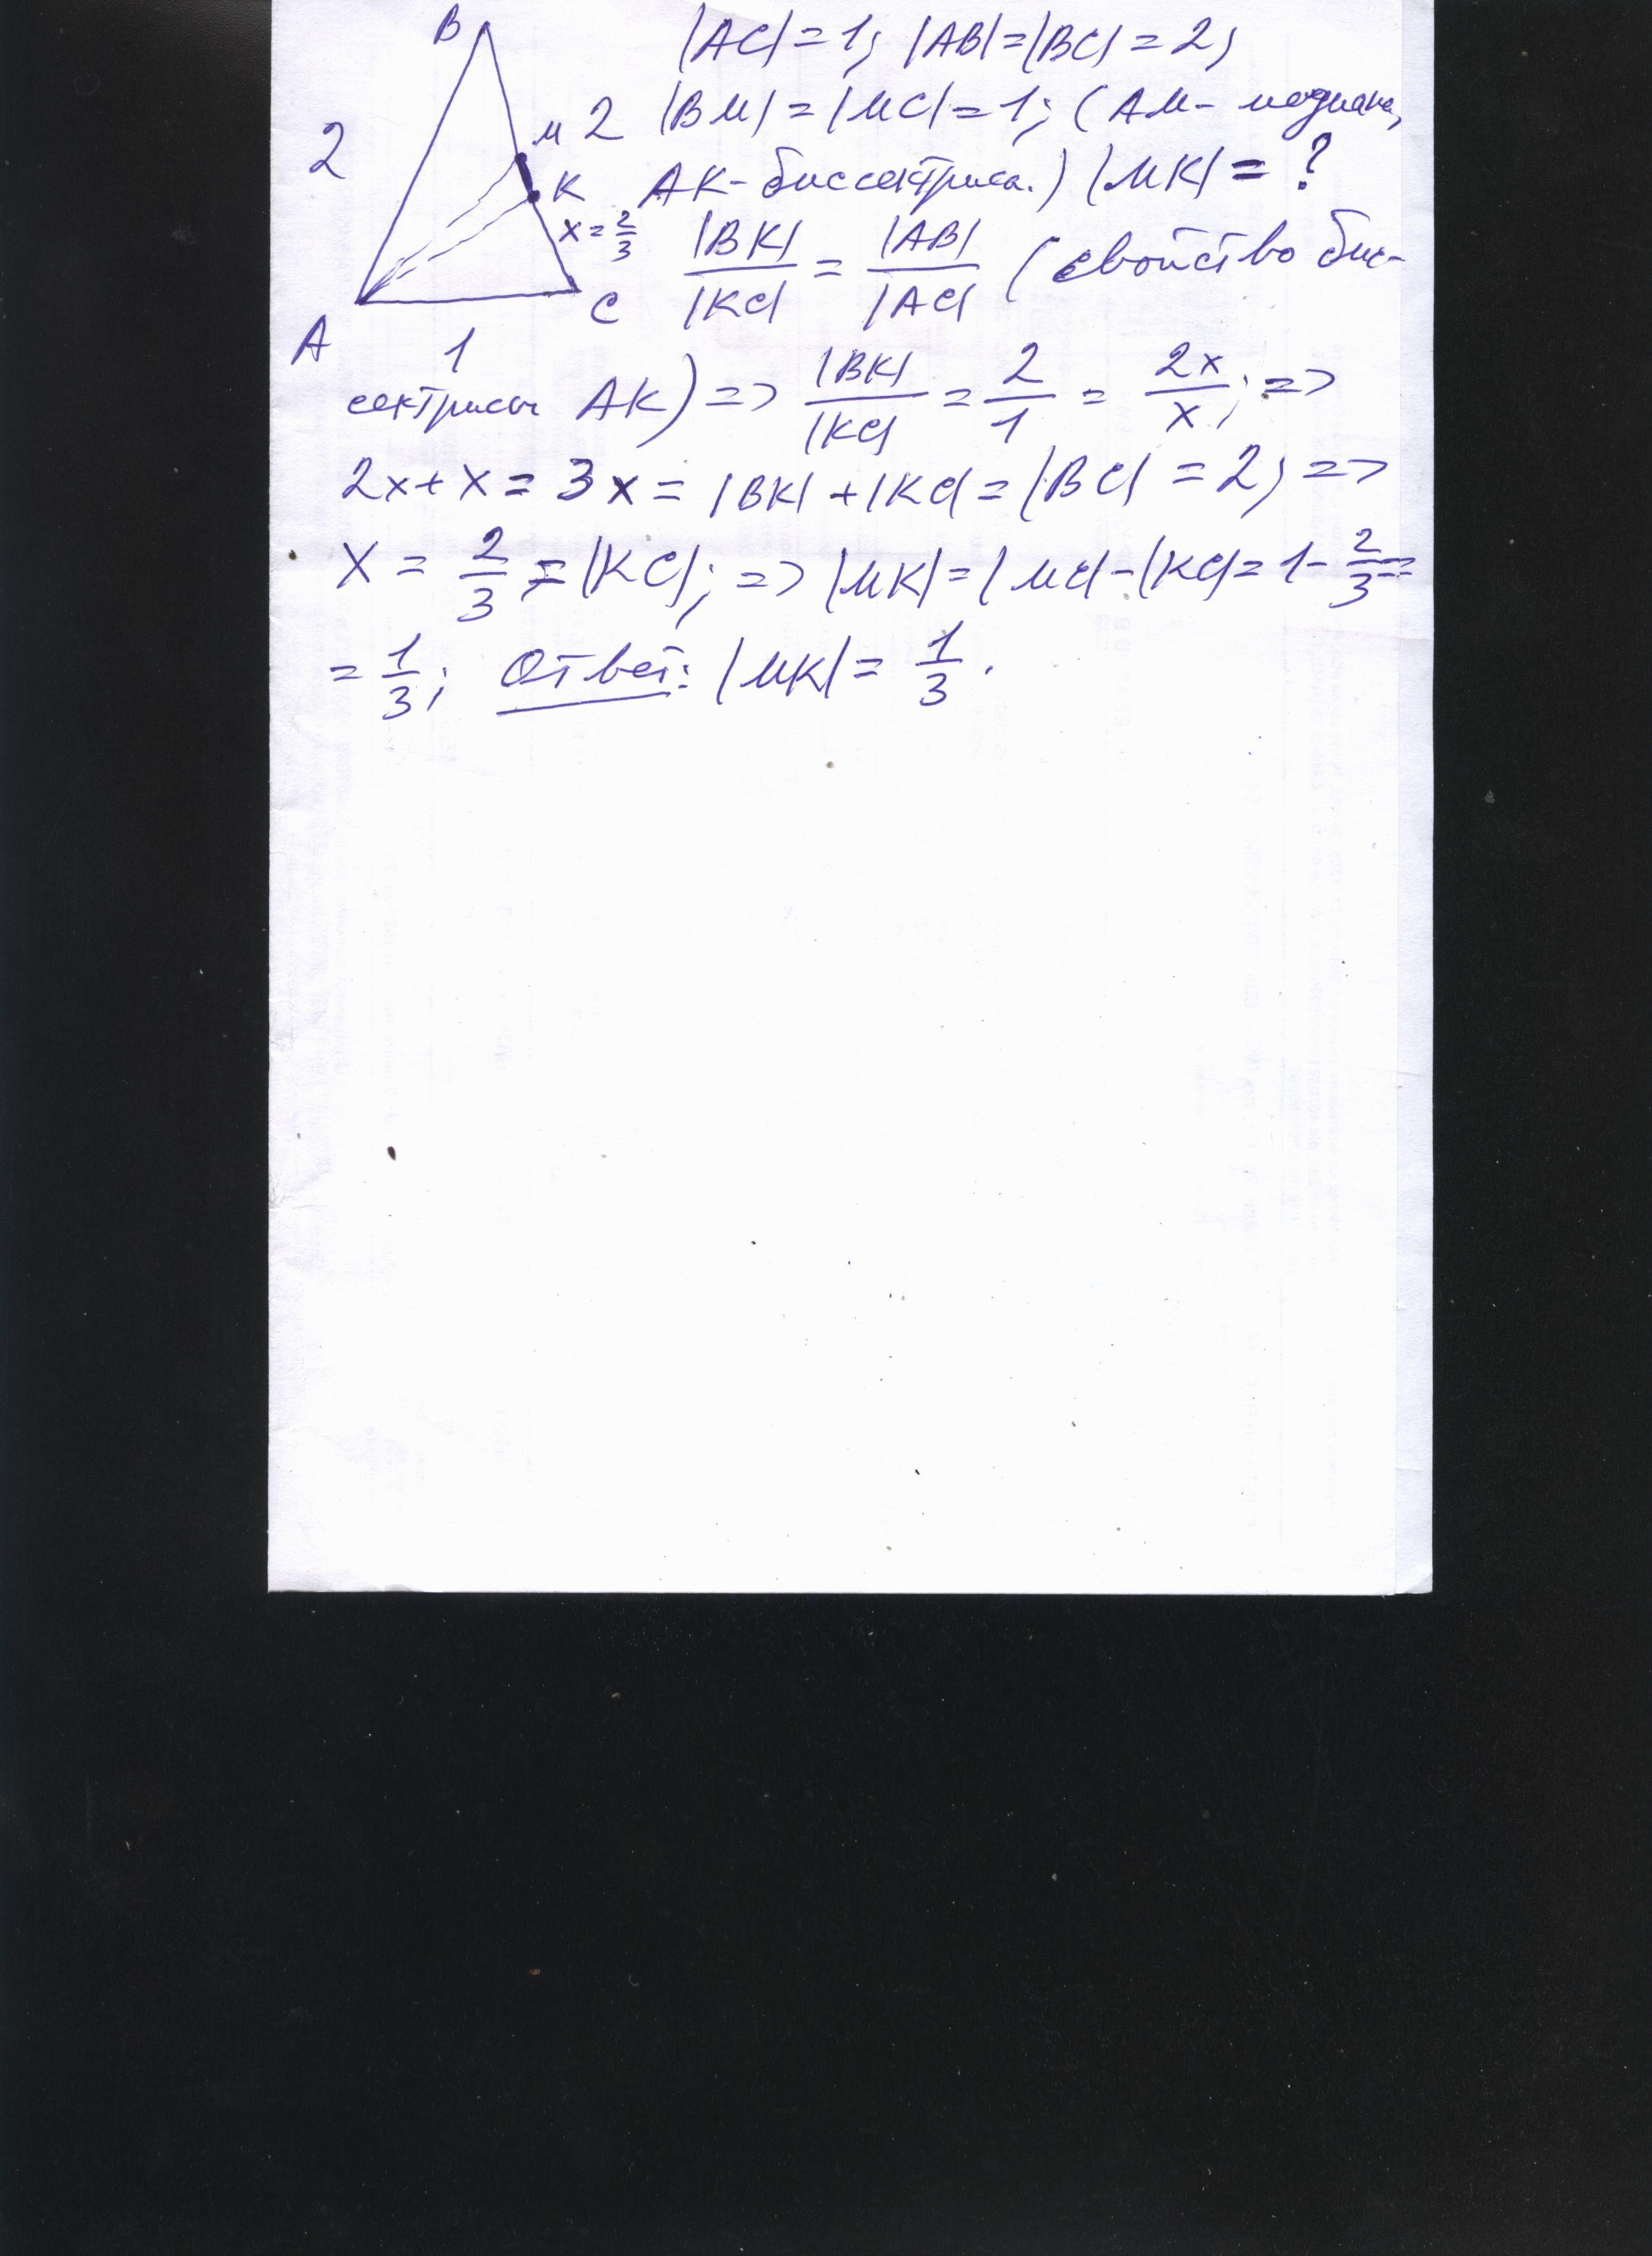 B |AC|=1; |AB|=|BC|=2;
2 M 2 |BM|=|MC|=1; (AM- медиана,
K AK-биссектриса.) |MK|=?
x=2/3 |BK|/|KC| = |AB|/|AC| (свойство бис-
A 1 C
сектрисы AK) => |BK|/|KC| = 2/1 = 2x/x; =>
2x+x=3x=|BK|+|KC|=|BC|=2; =>
x = 2/3 = |KC|; => |MK|=|MC|-|KC|=1-2/3=
= 1/3; Ответ: |MK|= 1/3.